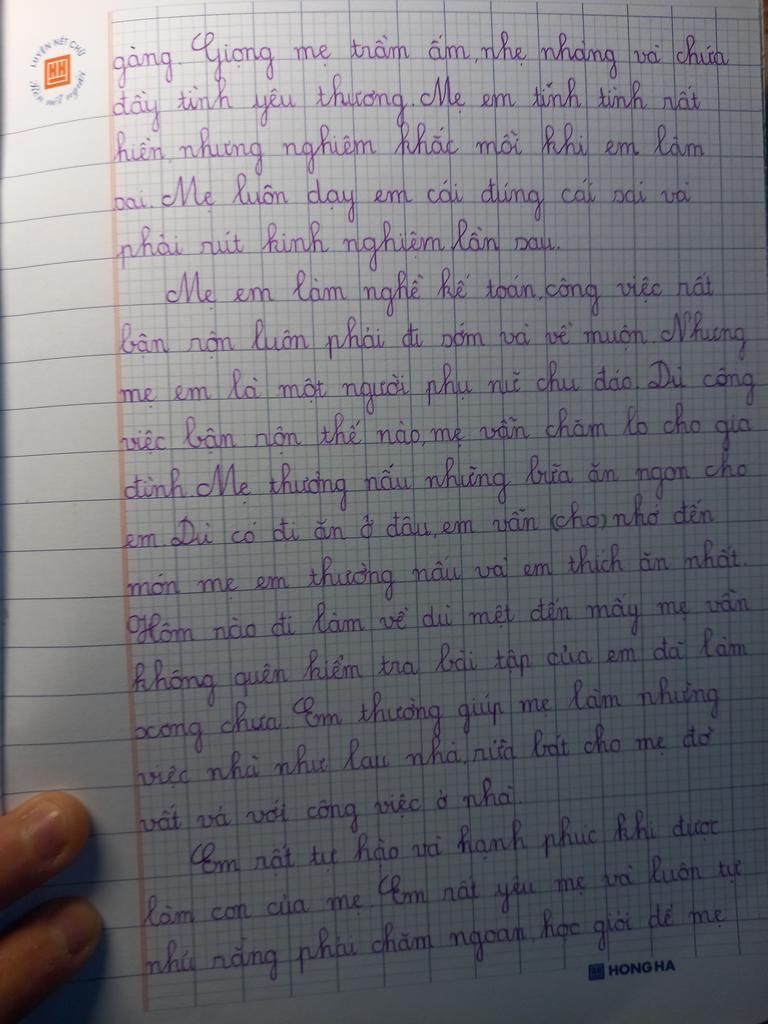 LUYỆN NÉT CHỮ
Rèn nết người
gàng. Giọng mẹ trầm ấm, nhẹ nhàng và chứa
đầy tình yêu thương. Mẹ em tính tình rất
hiền, nhưng nghiêm khắc mỗi khi em làm
sai. Mẹ luôn dạy em cái đúng cái sai và
phải rút kinh nghiệm lần sau.
Mẹ em làm nghề kế toán, công việc rất
bận rộn luôn phải đi sớm và về muộn. Nhưng
mẹ em là một người phụ nữ chu đáo. Dù công
việc bận rộn thế nào, mẹ vẫn chăm lo cho gia
đình. Mẹ thường nấu những bữa ăn ngon cho
em. Dù có đi ăn ở đâu, em vẫn (cho) nhớ đến
món mẹ em thường nấu và em thích ăn nhất.
Hôm nào đi làm về dù mệt đến mấy mẹ vẫn
không quên kiểm tra bài tập của em đã làm
xong chưa. Em thường giúp mẹ làm những
việc nhà như lau nhà, rửa bát cho mẹ đỡ
vất vả với công việc ở nhà.
Em rất tự hào và hạnh phúc khi được
làm con của mẹ. Em rất yêu mẹ và luôn tự
nhủ rằng phải chăm ngoan, học giỏi để mẹ
HONG HA